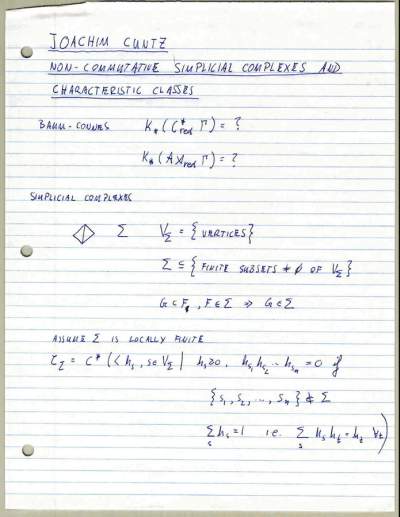 JOACHIM CUNTZ
NON-COMMUTATIVE SIMPLICIAL COMPLEXES AND
CHARACTERISTIC CLASSES
BAUM-CONNES K_*(C*_red Γ) = ?
K_*(A ⋊_red Γ) = ?
SIMPLICIAL COMPLEXES
Σ V_Σ = {VERTICES}
Σ ⊆ {FINITE SUBSETS ≠ ∅ OF V_Σ}
G ⊂ F, F ∈ Σ ⇒ G ∈ Σ
ASSUME Σ IS LOCALLY FINITE
C_Σ = C*(< h_s, s ∈ V_Σ | h_s ≥ 0, h_{s_1} h_{s_2} ... h_{s_n} = 0 if
{s_1, s_2, ..., s_n} ∉ Σ
∑_s h_s = 1 i.e. ∑_s h_s h_t = h_t ∀t)